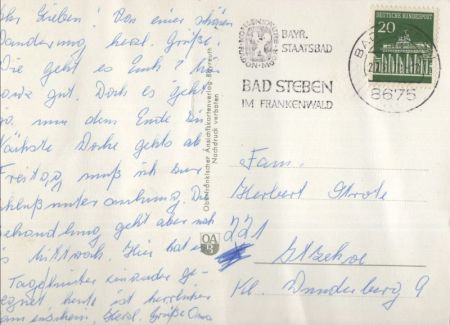 Ihr Lieben! Von einer schönen
Wanderung herzl. Grüße.
Wie geht es Euch? hier
ganz gut. Doch es geht
ja nun dem Ende zu
Nächste Woche geht's ab
Freitag muß ich zur
Schlußuntersuchung. Die
Behandlung geht aber noch
bis Mittwoch. Hier hat es
Tage hinter einander ge-
regnet heute ist herrlicher
Herzl. Grüße Oma
Oberfränkischer Ansichtskartenverlag Bayreuth
Nachdruck verboten
OA
B
BAYR.
STAATSBAD
BAD STEBEN
IM FRANKENWALD
DEUTSCHE BUNDESPOST
20
8675
Fam.
Herbert Strote
221
Itzehoe
Kl. Dunderberg 9